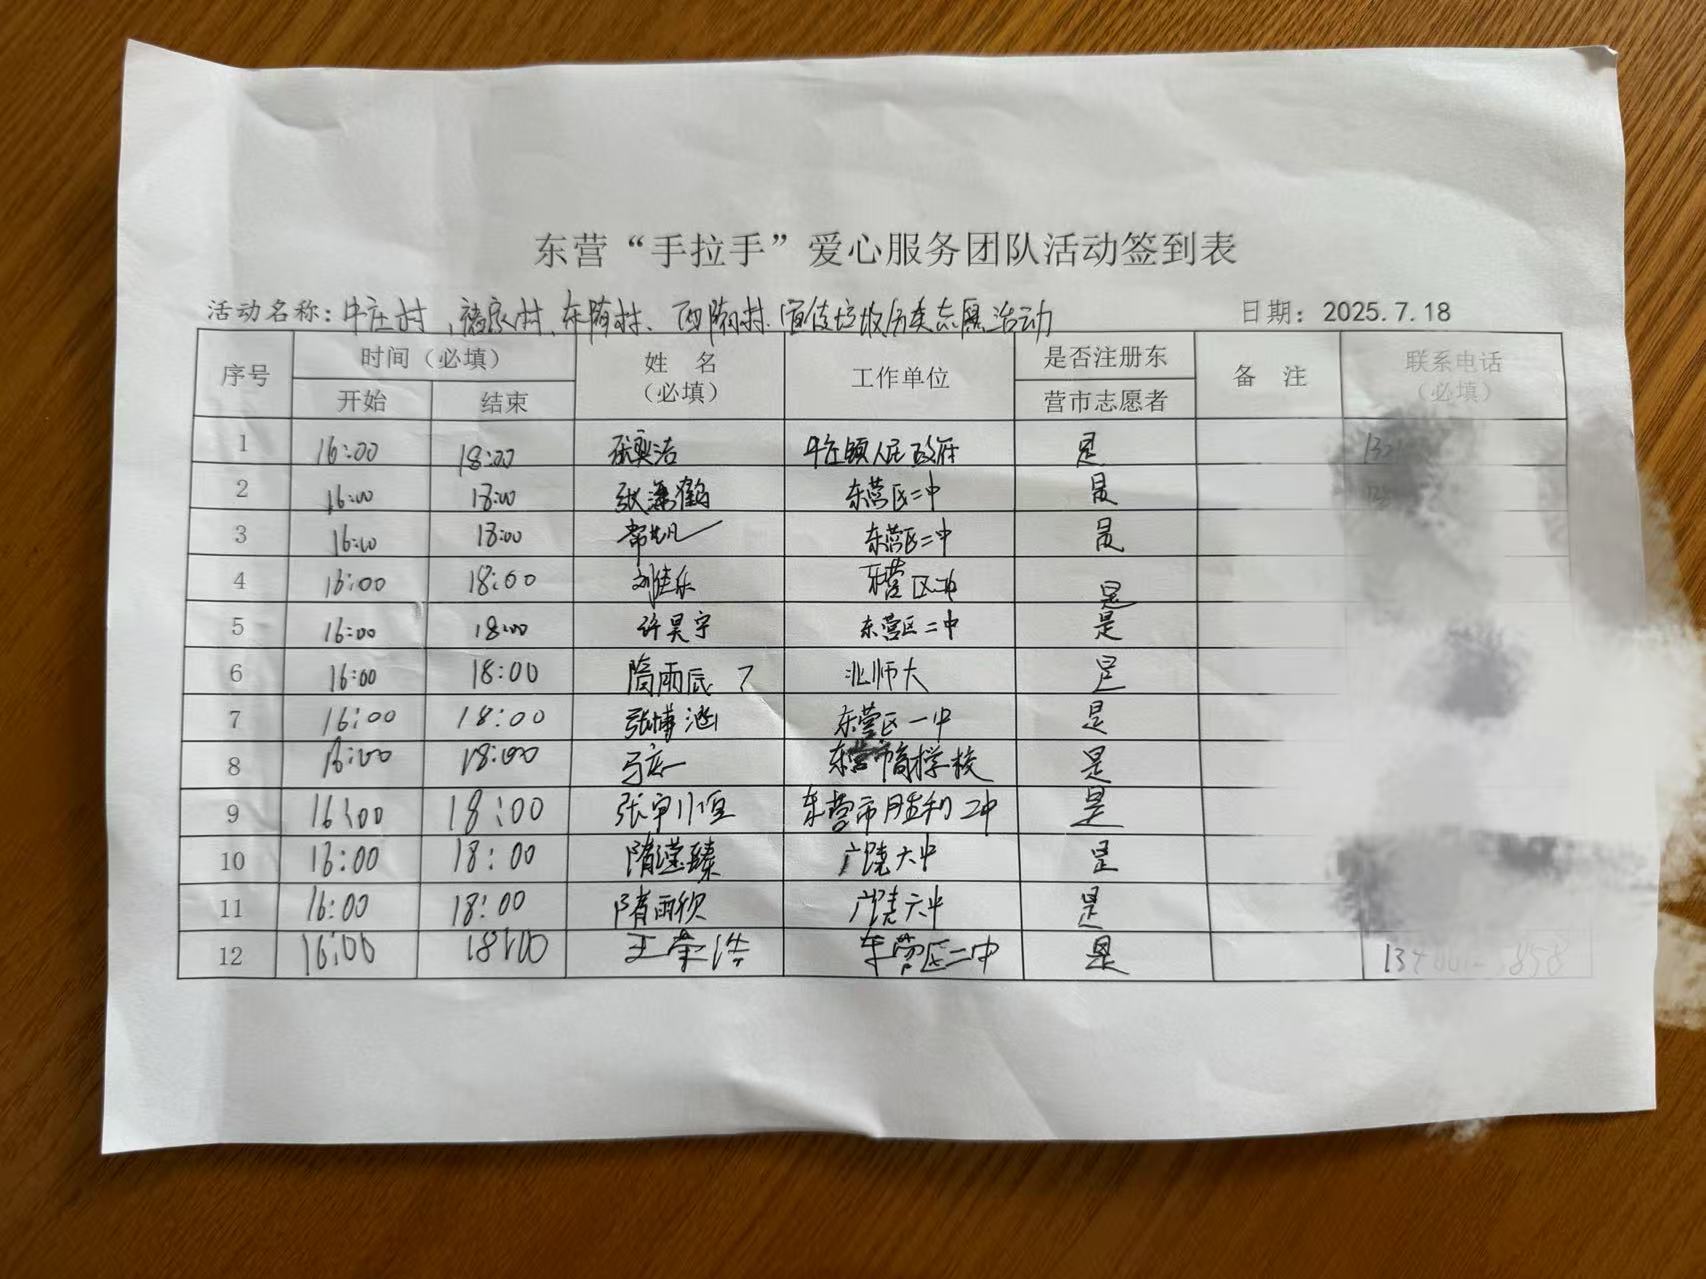 东营“手拉手”爱心服务团队活动签到表
活动名称：牛庄村、 村、东隋村、西隋村.宣传垃圾分类志愿活动 日期：2025.7.18
序号 时间（必填） 姓 名（必填） 工作单位 是否注册东营市志愿者 备 注 联系电话（必填）
开始 结束
1 16:00 18:00 牛庄镇人民政府 是
2 16:00 18:00 张潇鹤 东营区二中 是
3 16:00 18:00 东营区二中 是
4 16:00 18:00 刘佳乐 东营区二中 是
5 16:00 18:00 许昊宇 东营区二中 是
6 16:00 18:00 隋雨辰 北师大 是
7 16:00 18:00 张博涵 东营区一中 是
8 16:00 18:00 东营市 学校 是
9 16:00 18:00 张宇恒 东营市胜利二中 是
10 16:00 18:00 隋滢臻 广饶六中 是
11 16:00 18:00 隋雨欣 广饶六中 是
12 16:00 18:00 王荣浩 东营区二中 是